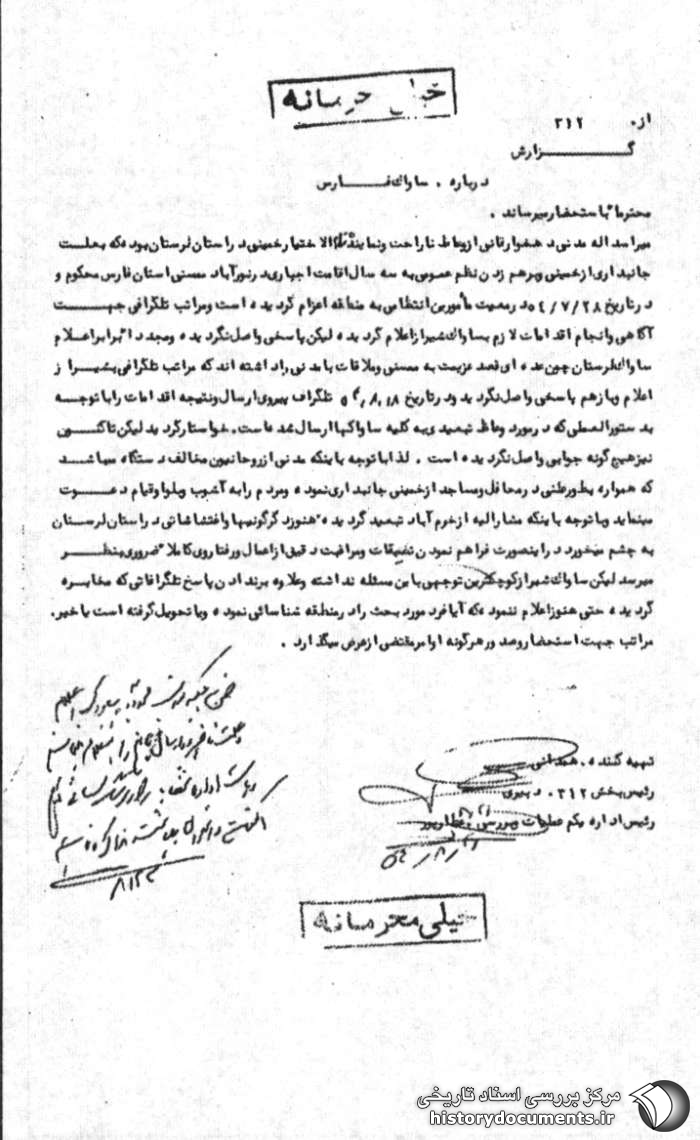 خیلی محرمانه
از. ۳۱۲
گــــزارش
درباره . ساواك فـــارس
محترما" باستحضار میرساند .
میراسداله مدنی دهخوارقانی ازوعاظ ناراحت ونماینده تام الاختیار خمینی در استان لرستان بوده که بعلت
جانبداری ازخمینی وبرهم زدن نظم عمومی به سه سال اقامت اجباری در نورآباد ممسنی استان فارس محکوم و
در تاریخ ۵۴/۷/۲۸ در معیت مأمورین انتظامی به منطقه اعزام گردیده است ومراتب تلگرافی جهـــت
آگاهی وانجام اقدامات لازم بساواك شیراز اعلام گردیده لیکن پاسخی واصل نگردیده ومجددا" برابر اعـلام
ساواك لرستان چون عده ای قصد عزیمت به ممسنی وملاقات با مدنی را داشته اند که مراتب تلگرافی بشیراز
اعلام وبازهم پاسخی واصل نگردید ودر تاریخ ۵۴/۸/۱۸ تلگراف پیروی ارسال ونتیجه اقدامات را باتوجــه
به دستورالعملی که در مورد وعاظ تبعیدی به کلیه ساواکها ارسال شده است، خواستار گردید لیکن تاکنــون
نیز هیچ گونه جوابی واصل نگردیده است . لذا با توجه باینکه مدنی از روحانیون مخالف دستگاه میباشـــد
که همواره بطور علنی در محافل ومساجد از خمینی جانبداری نموده ومردم را به آشوب وبلوا وقیام دعـــوت
مینماید وبا توجه باینکه مشارالیه از خرم آباد تبعید گردیده هنوز دگرگونیها واغتشاشاتی در استان لرستان
به چشم میخورد در اینصورت فراهم نمودن تضییقات ومراقبت دقیق از اعمال ورفتار وی کاملا" ضروری بنظـــر
میرسد لیکن ساواك شیراز کوچکترین توجهی باین مسئله نداشته وعلاوه برندادن پاسخ تلگرافاتی که مخابره
گردیده حتی هنوز اعلام ننموده که آیا فرد مورد بحث را در منطقه شناسائی نموده ویا تحویل گرفته است یا خیر.
مراتب جهت استحضار وصدور هرگونه اوامر مقتضی از عرض میگذارد .
تهیه کننده . همدانی
رئیس بخش ۳۱۲ . دبیری
رئیس اداره یکم عملیات وبررسی . عطارپور
۸/۲۴
خیلی محرمانه
مرکز بررسی اسناد تاریخی
historydocuments.ir